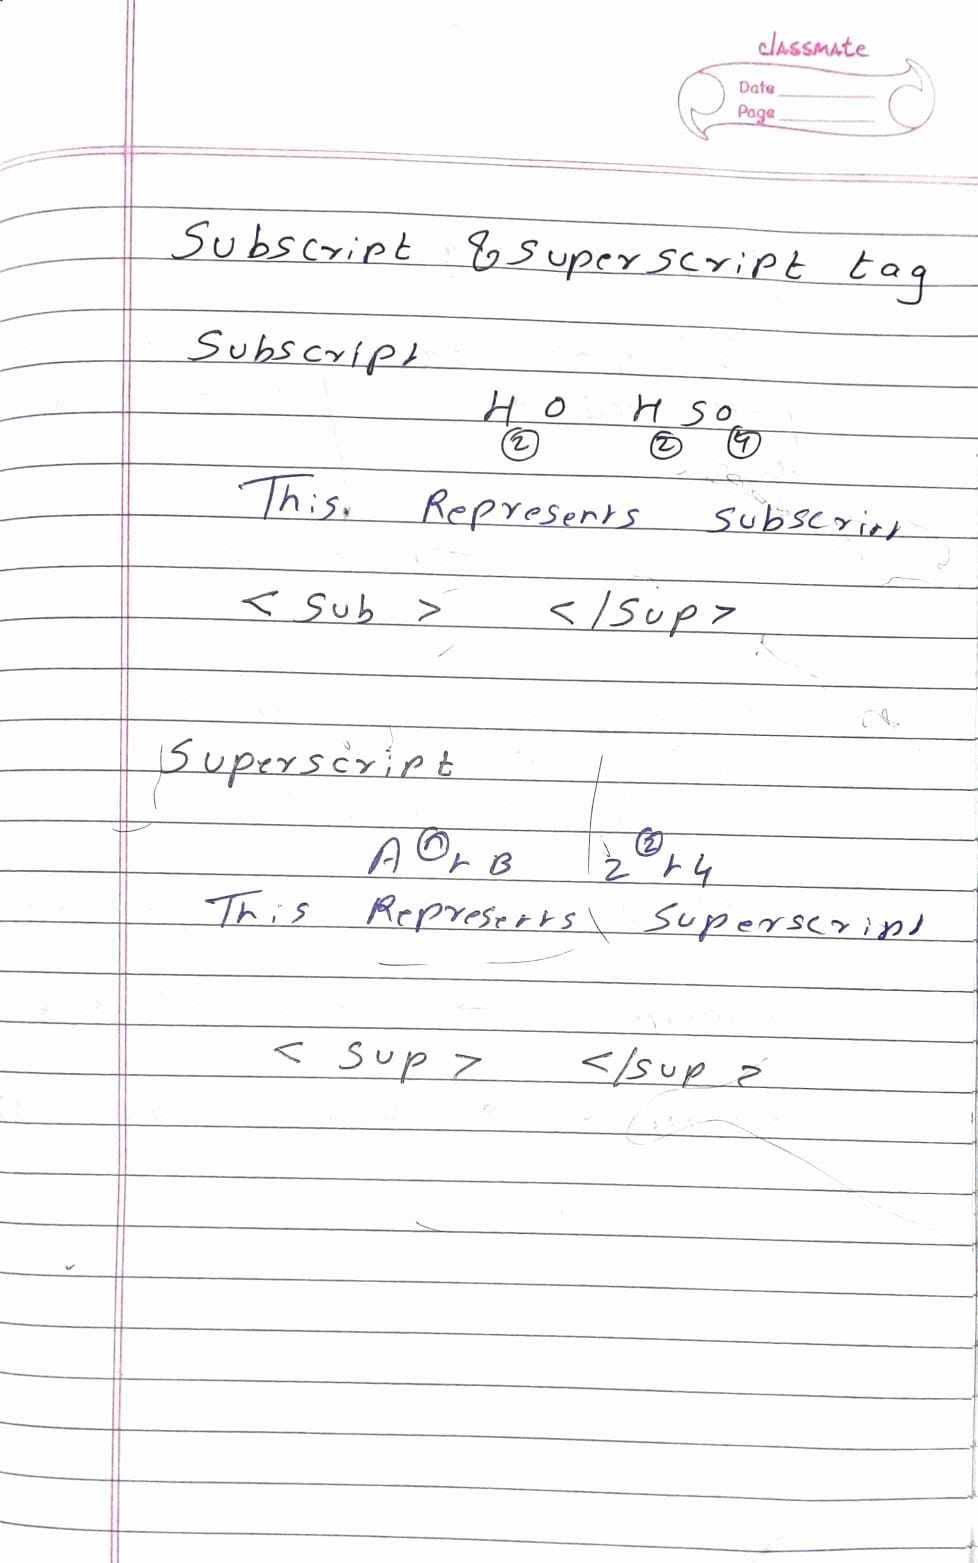 classmate
Date
Page
Subscript & Superscript tag
Subscript
H₂O H₂SO₄
This. Represents subscript
< Sub > </Sup>
Superscript
Aⁿ+B 2²+4
This Represents Superscript
< Sup > </sup >